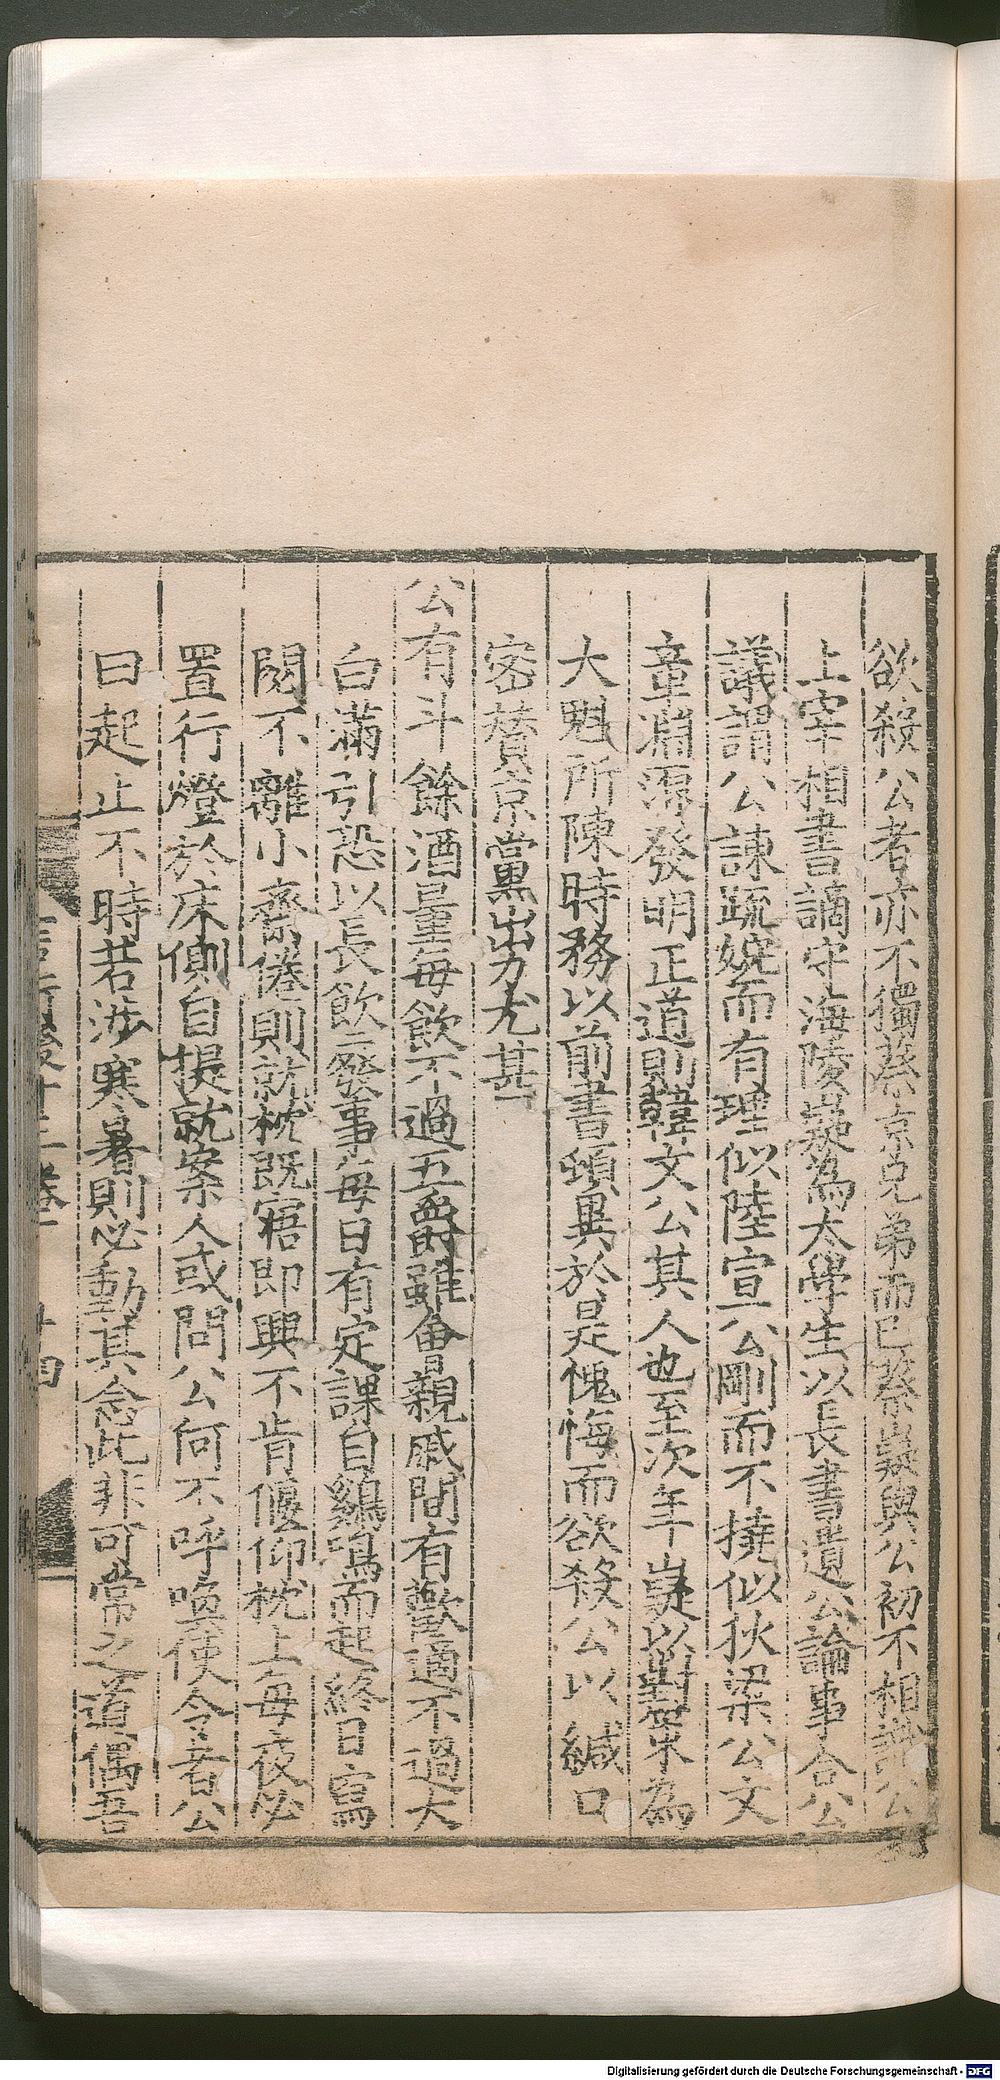 欲殺公者亦不獨蔡京兄弟而已蔡嶷與公初不相識公
上宰相書謫守海陵嶷為太學生以長書遺公論事合公
議謂公諫疏婉而有理似陸宣公剛而不撓似狄梁公文
章淵源發明正道則韓文公其人也至次年嶷以對策為
大魁所陳時務以前書頌異於是愧悔而欲殺公以緘口
密贊京黨出力尤甚
公有斗餘酒量每飲不過五爵雖會親戚間有歡適不過大
白滿引恐以長飲廢事每日有定課自鷄鳴而起終日寫
閱不離小齋倦則就枕既寤即興不肯偃仰枕上每夜必
置行燈於床側自提就案人或問公何不呼喚使令者公
曰起止不時若涉寒暑則必動其念此非可常之道偶吾
言行後十三卷
廿四
Digitalisierung gefördert durch die Deutsche Forschungsgemeinschaft - DFG